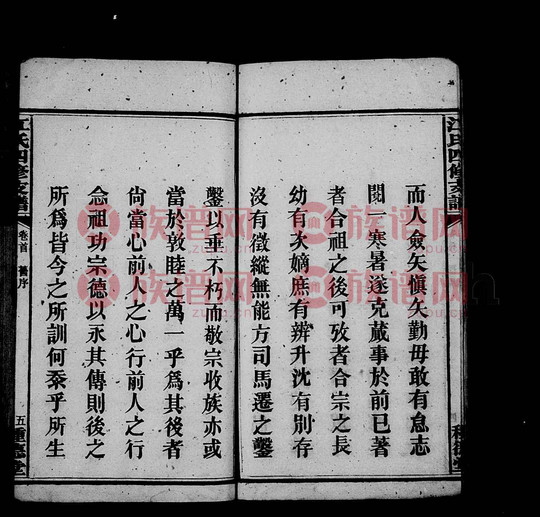 江氏四修支譜
種德堂
而人僉矢愼矢勤毋敢有怠志
閱一寒暑遂克蕆事於前巳著
者合祖之後可攷者合宗之長
幼有次嫡庶有辨升沈有別存
沒有徵縱無能方司馬遷之鑿
鑿以垂不朽而敬宗收族亦或
當於敦睦之萬一乎爲其後者
尙當心前人之心行前人之行
念祖功宗德以永其傳則後之
所爲皆今之所訓何忝乎所生
江氏四修支譜
卷首
舊序
五
種德堂
族谱网
族谱网
族谱网
族谱网
族谱网
族谱网